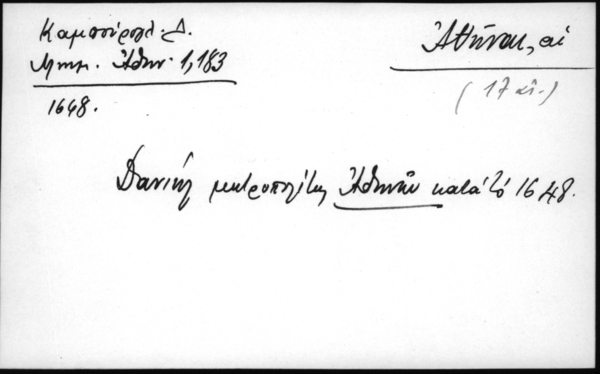 Καμπούρογλ. Δ.
Μνημ. Ἀθην. 1,183
1648.
Ἀθῆναι, αἱ
(17 αἰ.)
Δανιήλ μητροπολίτης Ἀθηνῶν κατά τό 1648.